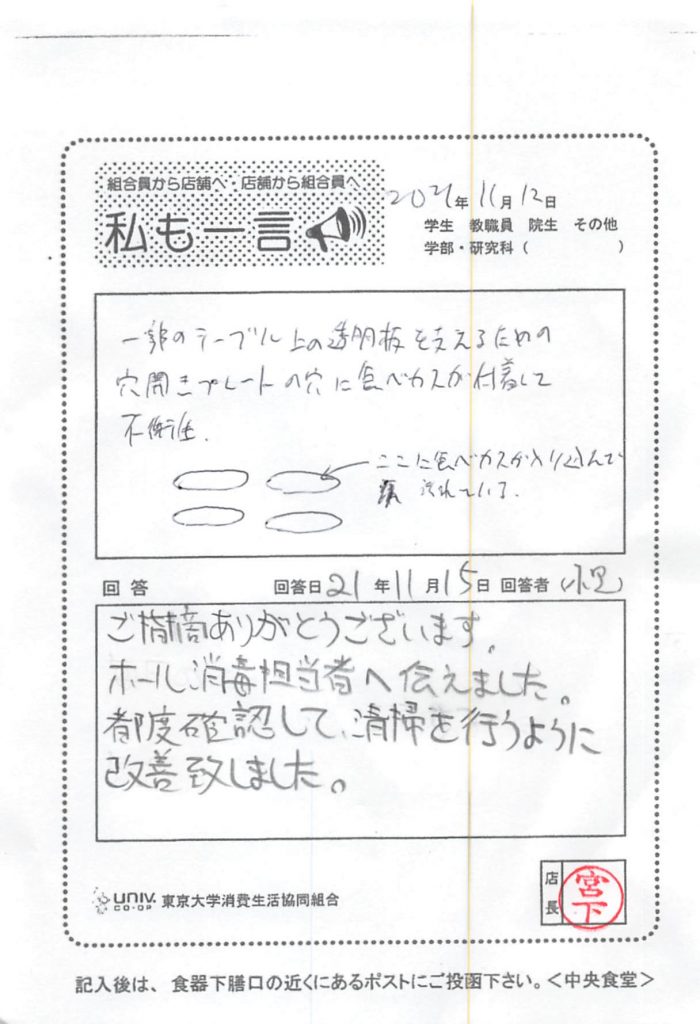 組合員から店舗へ・店舗から組合員へ
私も一言
2021年 11月 12日
学生 教職員 院生 その他
学部・研究科( )
一部のテーブル上の透明板を支えるための
穴開きプレートの穴に食べカスが付着して
不衛生.
ここに食べカスが入り込んで
汚れている.
回答 回答日 21年 11月 15日 回答者
ご指摘ありがとうございます。
ホール消毒担当者へ伝えました。
都度確認して、清掃を行うように
改善致しました。
店長
宮下
UNIV. CO-OP 東京大学消費生活協同組合
記入後は、食器下膳口の近くにあるポストにご投函下さい。<中央食堂>